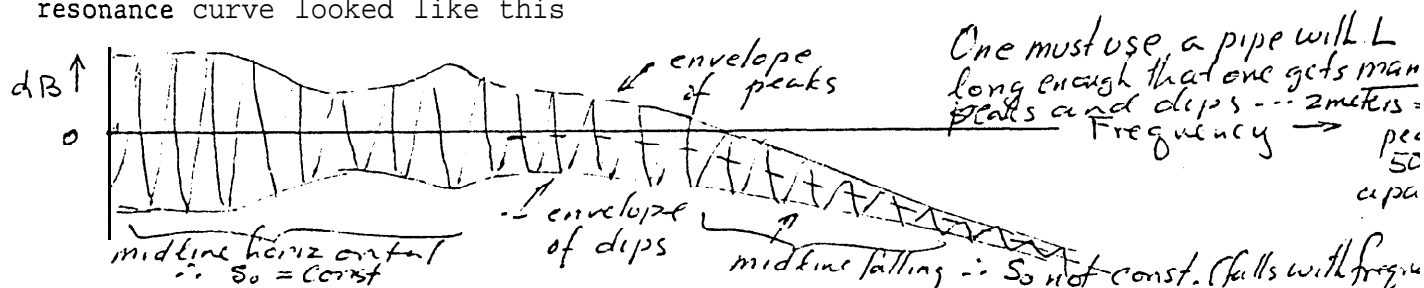 resonance curve looked like this
One must use a pipe with L
long enough that one gets man
peaks and dips --- 2 meters =
Frequency →
pea
50
apa
dB ↑
0
envelope
of peaks
envelope
of dips
midline horizontal
∴ S₀ = const
midline falling ∴ S₀ not const. (falls with freque